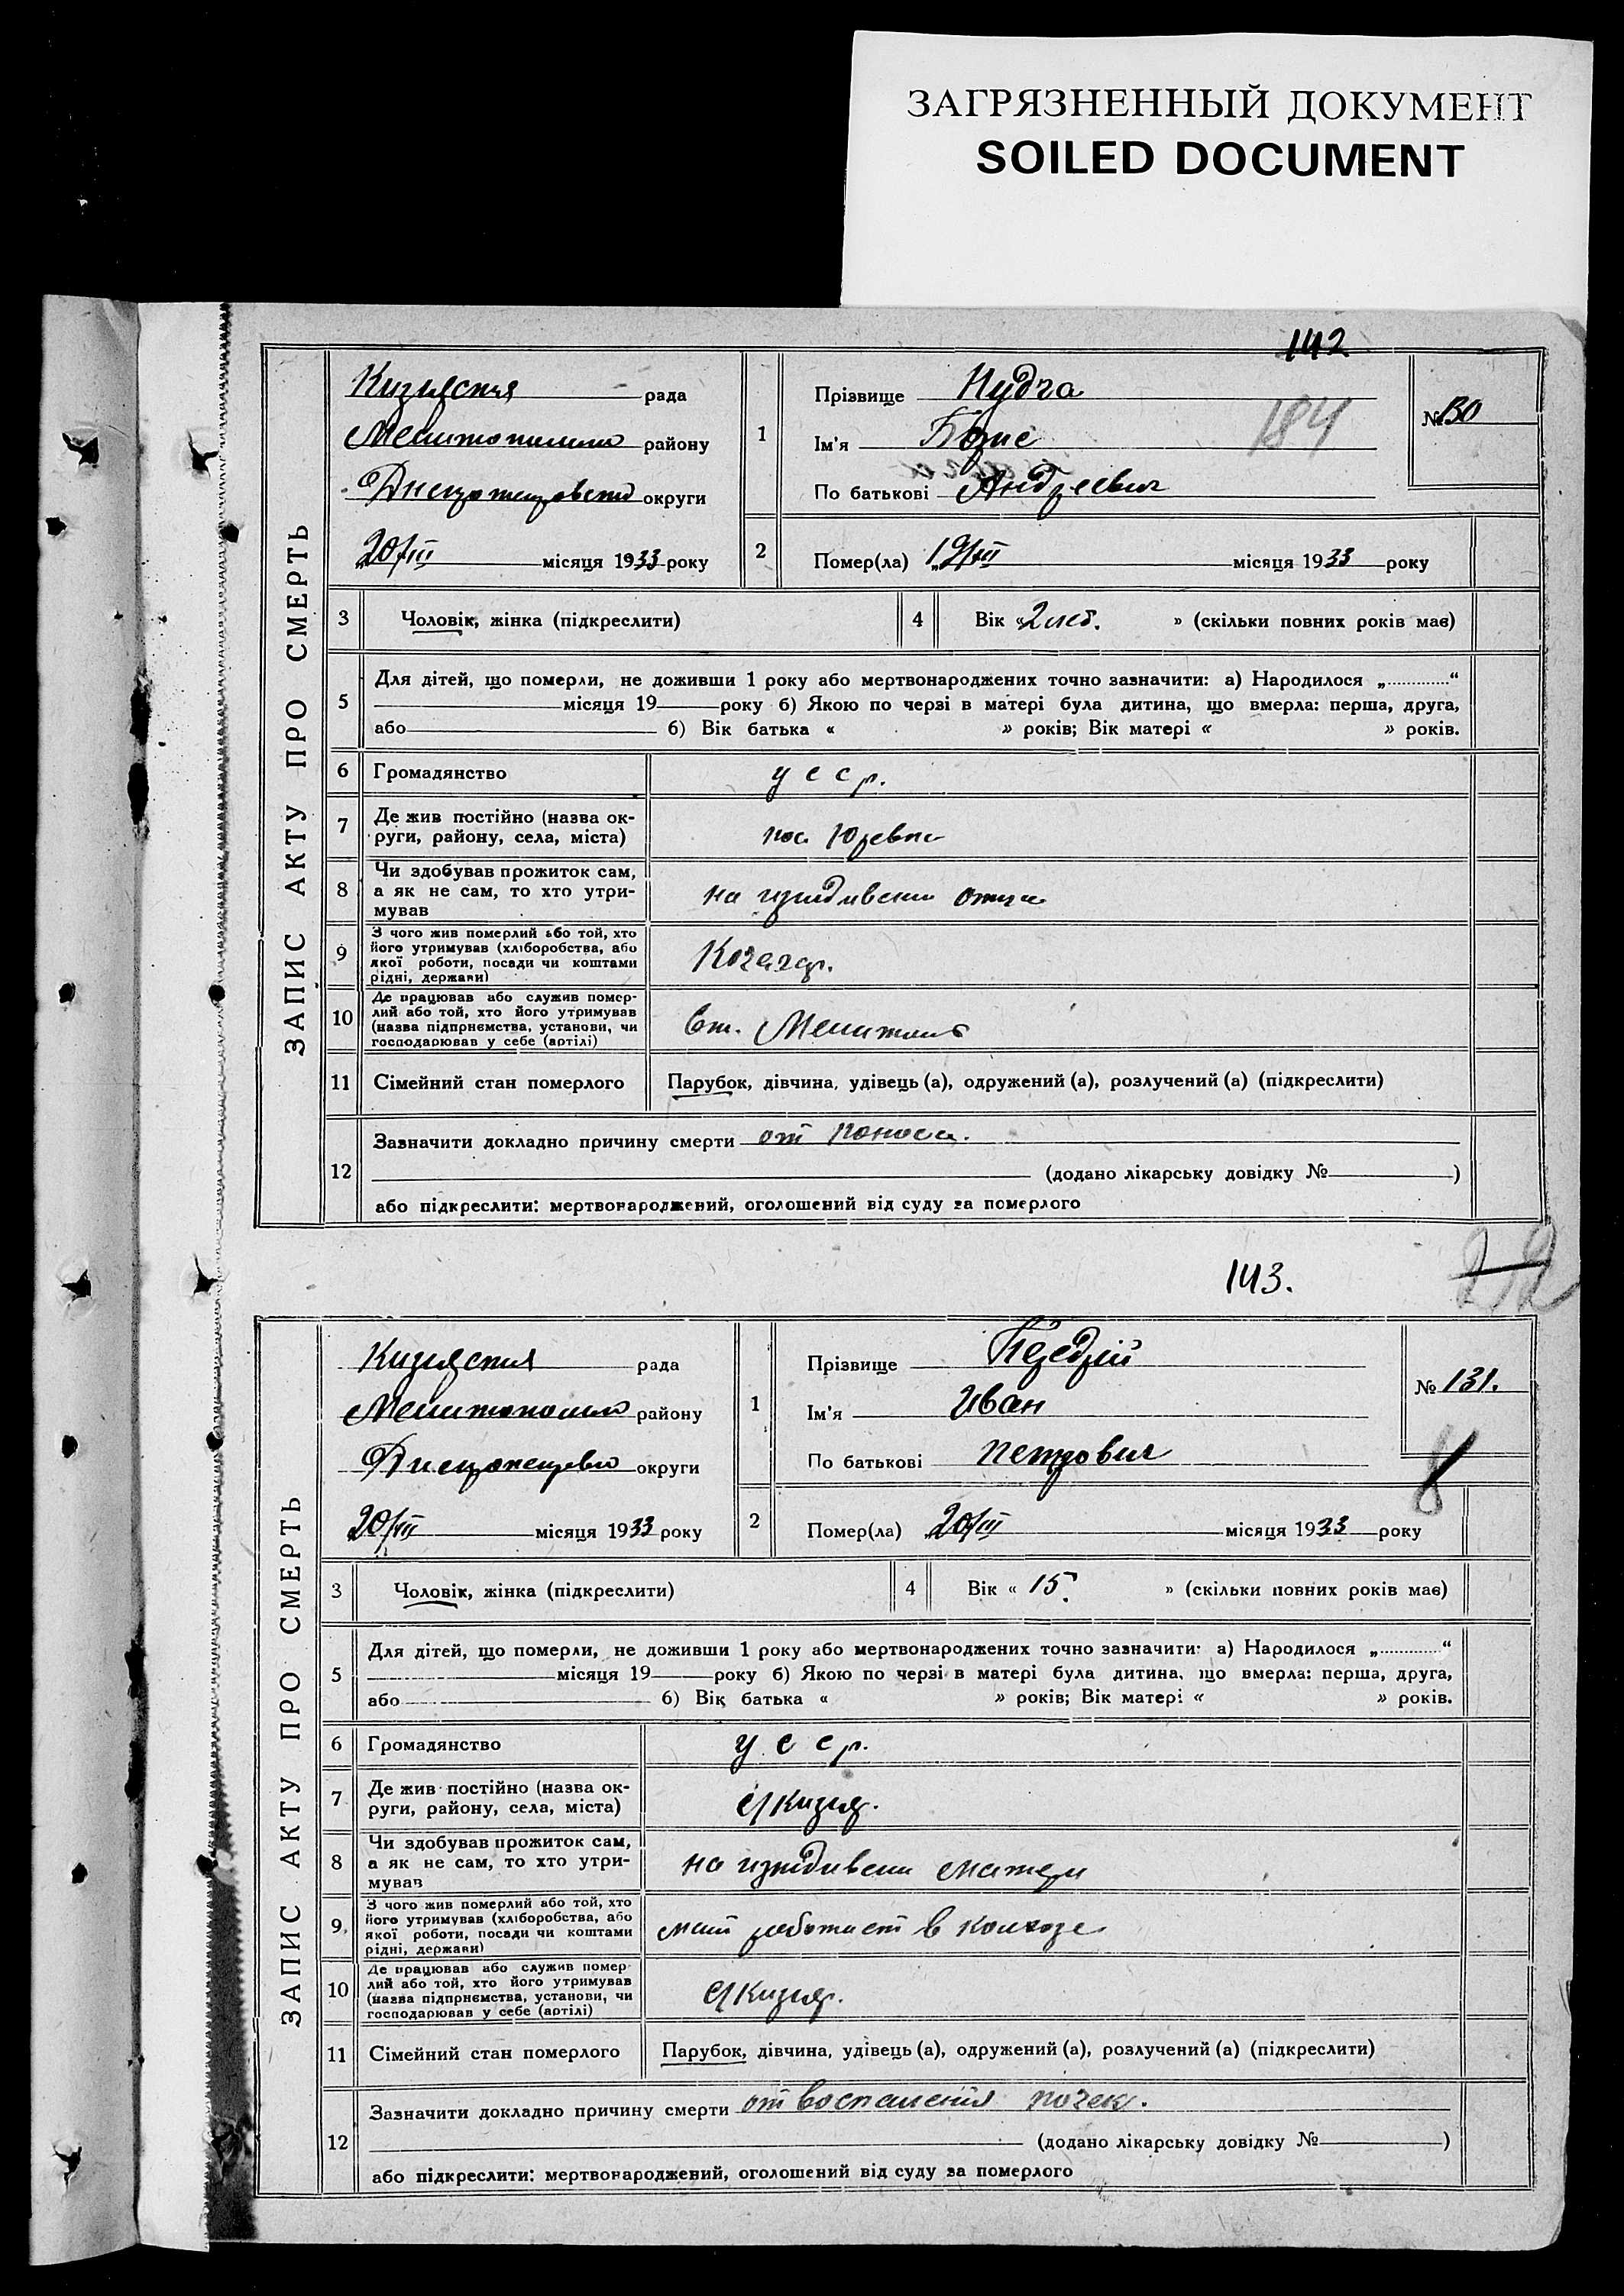 ЗАГРЯЗНЕННЫЙ ДОКУМЕНТ
SOILED DOCUMENT
142
ЗАПИС АКТУ ПРО СМЕРТЬ
Кизиярская рада
района
округи
20/III місяця 1933 року
1
Прізвище Нудга
184
Ім'я Борис
По батькові Андреевич
№ 130
2
Помер(ла) „19/III місяця 1933 року
3 Чоловік, жінка (підкреслити)
4 Вік «2 лет. » (скільки повних років має)
5 Для дітей, що померли, не доживши 1 року або мертвонароджених точно зазначити: а) Народилося „............“
місяця 19 року б) Якою по черзі в матері була дитина, що вмерла: перша, друга,
або б) Вік батька « » років; Вік матері « » років.
6 Громадянство у с с р.
7 Де жив постійно (назва ок-
руги, району, села, міста)
пос Юревка
8 Чи здобував прожиток сам,
а як не сам, то хто утри-
мував
на иждивении отца
9 З чого жив померлий або той, хто
його утримував (хліборобства, або
якої роботи, посади чи коштами
рідні, держави)
Кочегар.
10 Де працював або служив помер-
лий або той, хто його утримував
(назва підприємства, установи, чи
господарював у себе (артілі)
ст. Мелитополь
11 Сімейний стан померлого Парубок, дівчина, удівець (а), одружений (а), розлучений (а) (підкреслити)
12 Зазначити докладно причину смерти от поноса.
(додано лікарську довідку № )
або підкреслити: мертвонароджений, оголошений від суду за померлого
143.
ЗАПИС АКТУ ПРО СМЕРТЬ
Кизиярская рада
району
округи
20/III місяця 1933 року
1
Прізвище
Ім'я Иван
По батькові Петрович
№ 131.
8
2
Помер(ла) 20/III місяця 1933 року
3 Чоловік, жінка (підкреслити)
4 Вік « 15. » (скільки повних років має)
5 Для дітей, що померли, не доживши 1 року або мертвонароджених точно зазначити: а) Народилося „............“
місяця 19 року б) Якою по черзі в матері була дитина, що вмерла: перша, друга,
або б) Вік батька « » років; Вік матері « » років.
6 Громадянство у с с р.
7 Де жив постійно (назва ок-
руги, району, села, міста)
с/Кизияр.
8 Чи здобував прожиток сам,
а як не сам, то хто утри-
мував
на иждивении матери
9. З чого жив померлий або той, хто
його утримував (хліборобства, або
якої роботи, посади чи коштами
рідні, держави)
мать работает в колхозе
10 Де працював або служив помер-
лий або той, хто його утримував
(назва підприємства, установи, чи
господарював у себе (артілі)
с/Кизияр.
11 Сімейний стан померлого Парубок, дівчина, удівець (а), одружений (а), розлучений (а) (підкреслити)
12 Зазначити докладно причину смерти от воспаления почек.
(додано лікарську довідку № )
або підкреслити: мертвонароджений, оголошений від суду за померлого